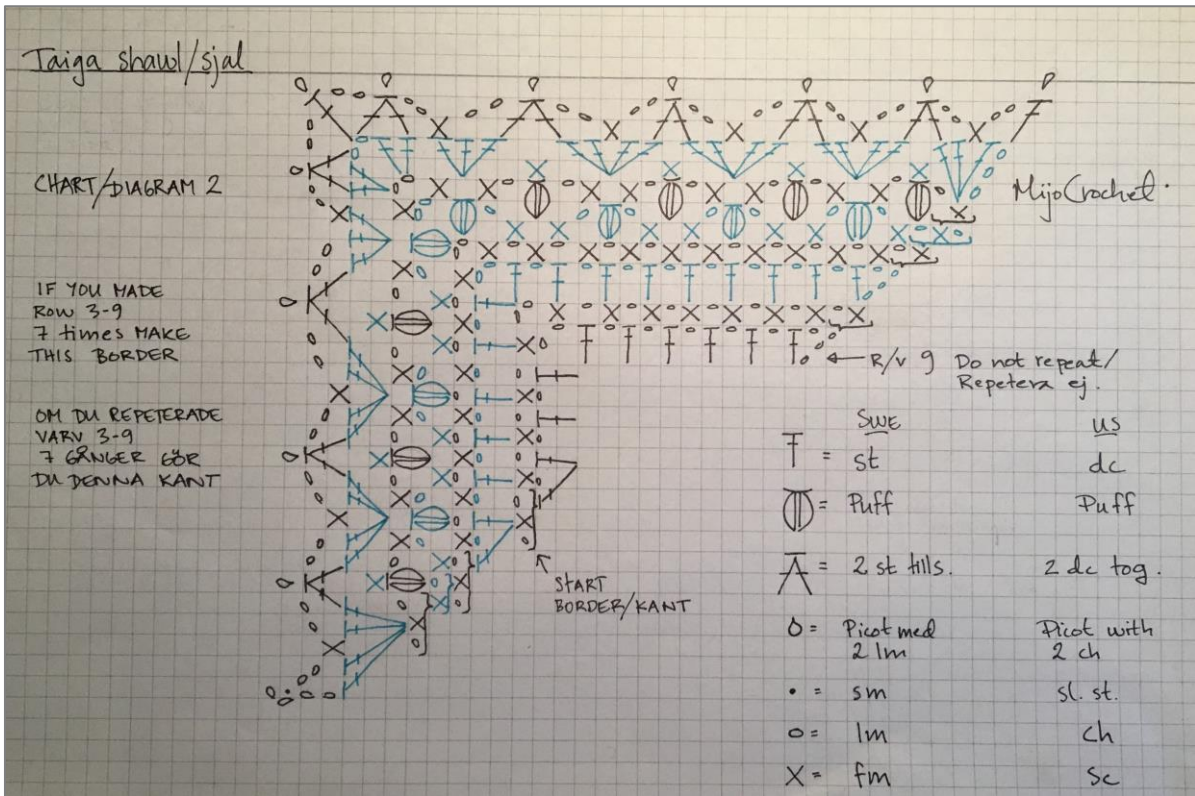 Taiga shawl/sjal
CHART/DIAGRAM 2
MijoCrochet.
IF YOU MADE
ROW 3-9
7 times MAKE
THIS BORDER
OM DU REPETERADE
VARV 3-9
7 GÅNGER GÖR
DU DENNA KANT
← R/V 9 Do not repeat/
Repetera ej.
START
BORDER/KANT
SWE US
= st dc
= Puff Puff
= 2 st tills. 2 dc tog.
= Picot med Picot with
2 lm 2 ch
• = sm sl. st.
o = lm ch
X = fm sc